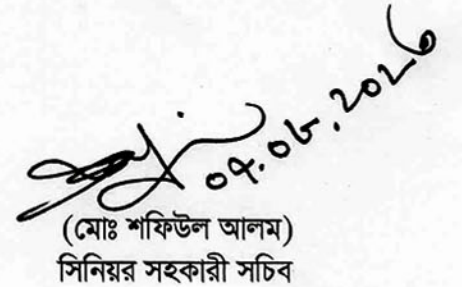 ০৭.০৮.২০২৩
(মোঃ শফিউল আলম)
সিনিয়র সহকারী সচিব